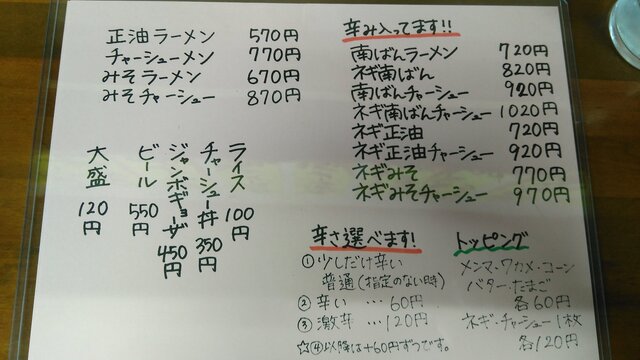 正油ラーメン 570円
チャーシューメン 770円
みそラーメン 670円
みそチャーシュー 870円
辛み入ってます!!
南ばんラーメン 720円
ネギ南ばん 820円
南ばんチャーシュー 920円
ネギ南ばんチャーシュー 1020円
ネギ正油 720円
ネギ正油チャーシュー 920円
ネギみそ 770円
ネギみそチャーシュー 970円
ライス 100円
チャーシュー丼 350円
ジャンボギョーザ 450円
ビール 550円
大盛 120円
辛さ選べます!
①少しだけ辛い
普通(指定のない時)
②辛い … 60円
③激辛 … 120円
☆④以降は+60円ずつです。
トッピング
メンマ・ワカメ・コーン
バター・たまご
各60円
ネギ・チャーシュー1枚
各120円